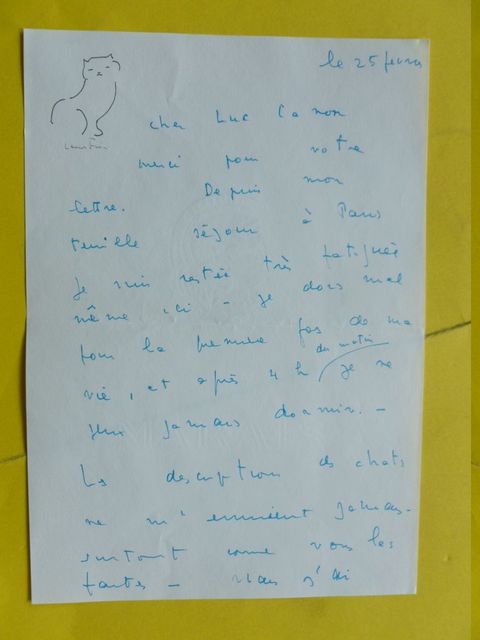 le 25 février
cher Luc Canon
merci pour votre
lettre. Depuis mon
terrible séjour à Paris
je suis restée très fatiguée
même ici - je dors mal
pour la première fois de ma
vie, et après 4 h du matin je ne
peux jamais dormir. -
Les description des chats
ne m'ennuient jamais -
surtout comme vous les
faites - Mais j'ai